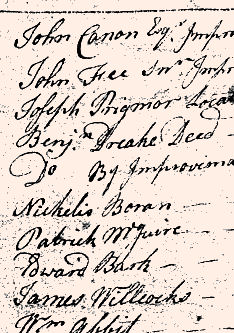 John Canon Esqr Impro
John Free Snr Impr
Joseph Prigmor Loca
Benjn Dreake Deed
Do By Improveme
Nickelis Boran
Patrick McGuire
Edward Bark
James Willcocks
Wm Abbit